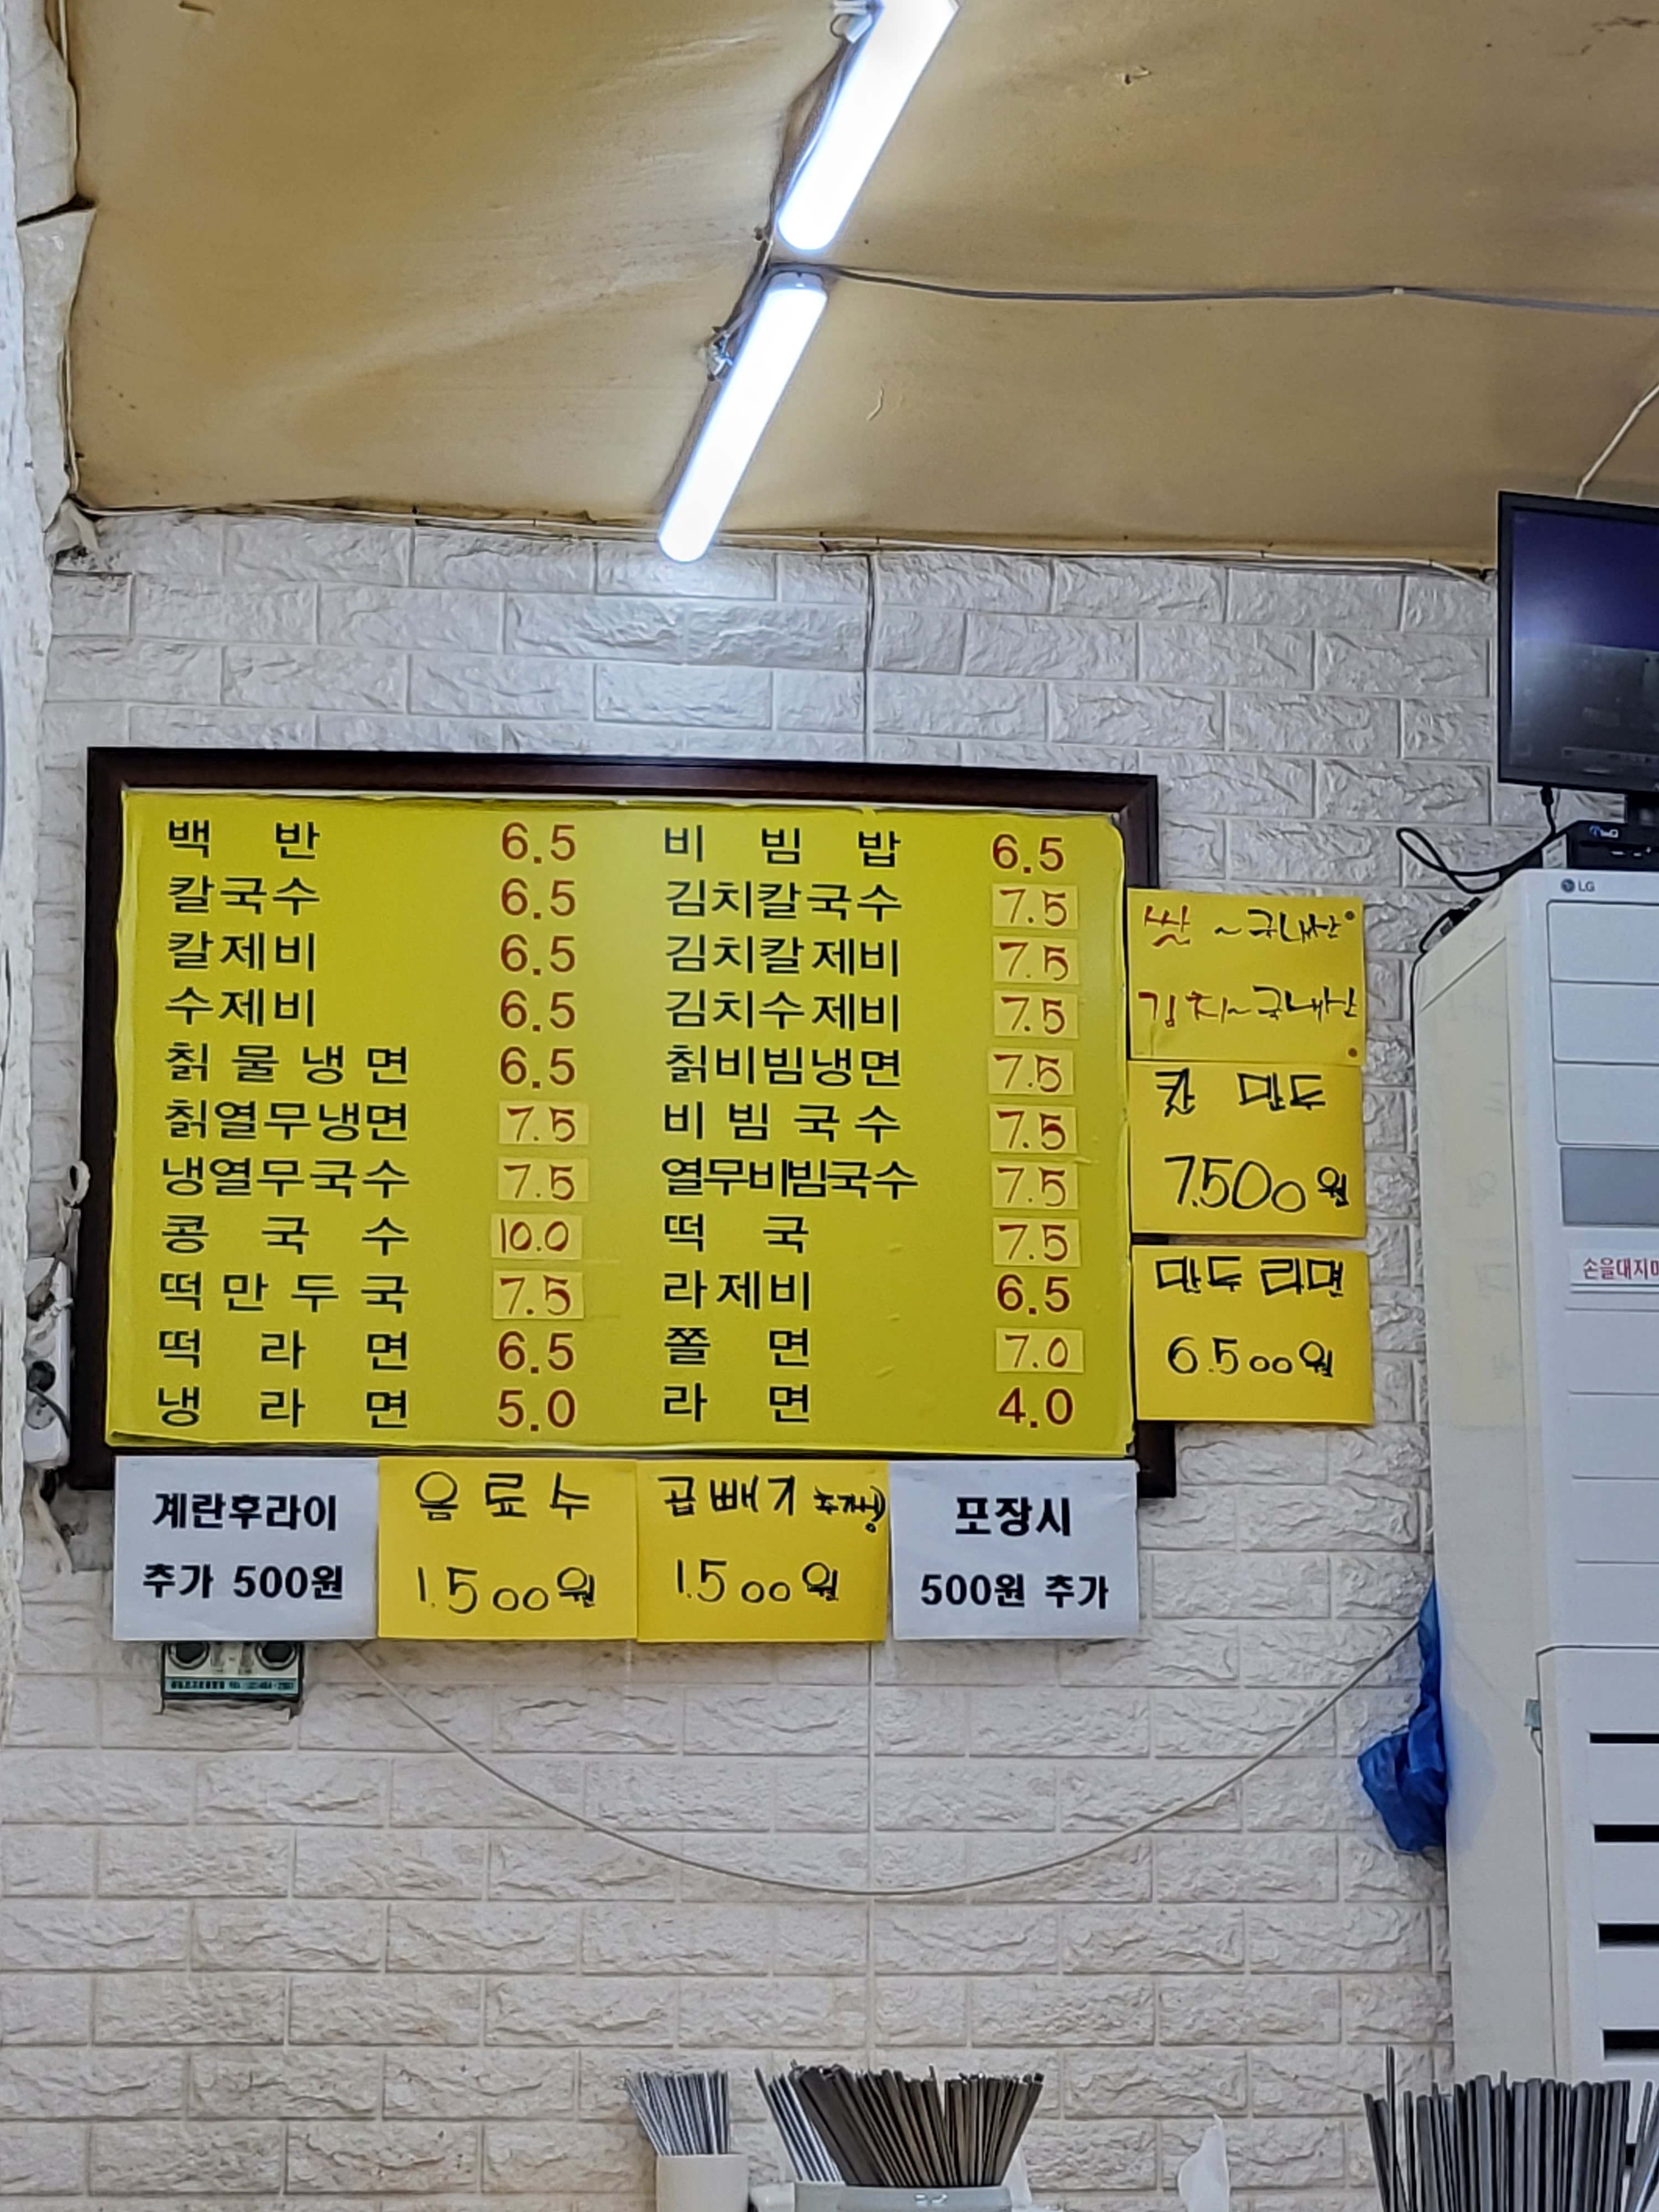 백 반 6.5 비 빔 밥 6.5
칼국수 6.5 김치칼국수 7.5
칼제비 6.5 김치칼제비 7.5
수제비 6.5 김치수제비 7.5
칡 물 냉 면 6.5 칡비빔냉면 7.5
칡열무냉면 7.5 비 빔 국 수 7.5
냉열무국수 7.5 열무비빔국수 7.5
콩 국 수 10.0 떡 국 7.5
떡 만 두 국 7.5 라제비 6.5
떡 라 면 6.5 쫄 면 7.0
냉 라 면 5.0 라 면 4.0
쌀 ~국내산
김치~국내산
칼 만두
7.500원
만두 라면
6.500원
계란후라이
추가 500원
음료수
1.500원
곱빼기 추가시
1.500원
포장시
500원 추가
LG
손을대지마